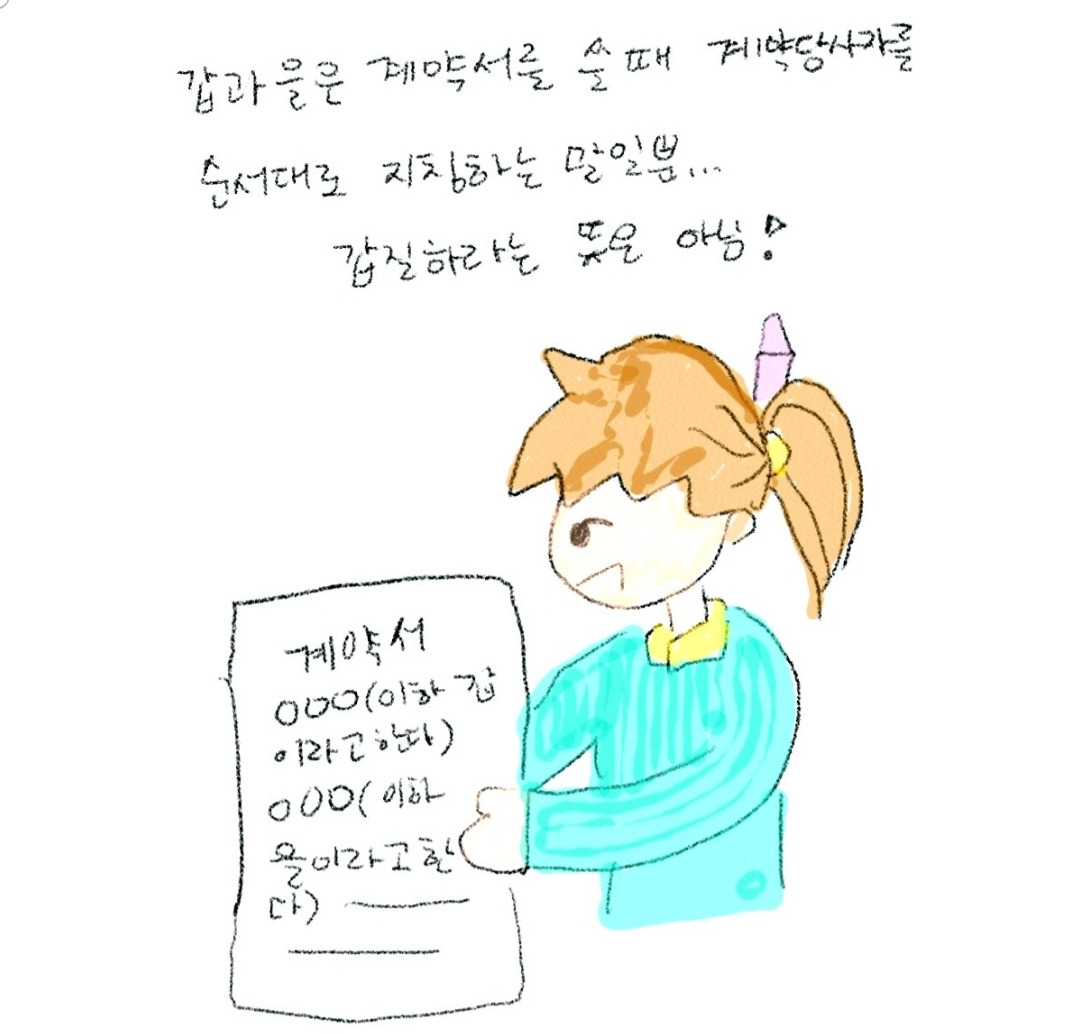 갑과 을은 계약서를 쓸때 계약당사자를
순서대로 지칭하는 말일뿐...
갑질하라는 뜻은 아님!
계약서
OOO(이하 갑
이라고한다)
OOO(이하
을이라고한
다)